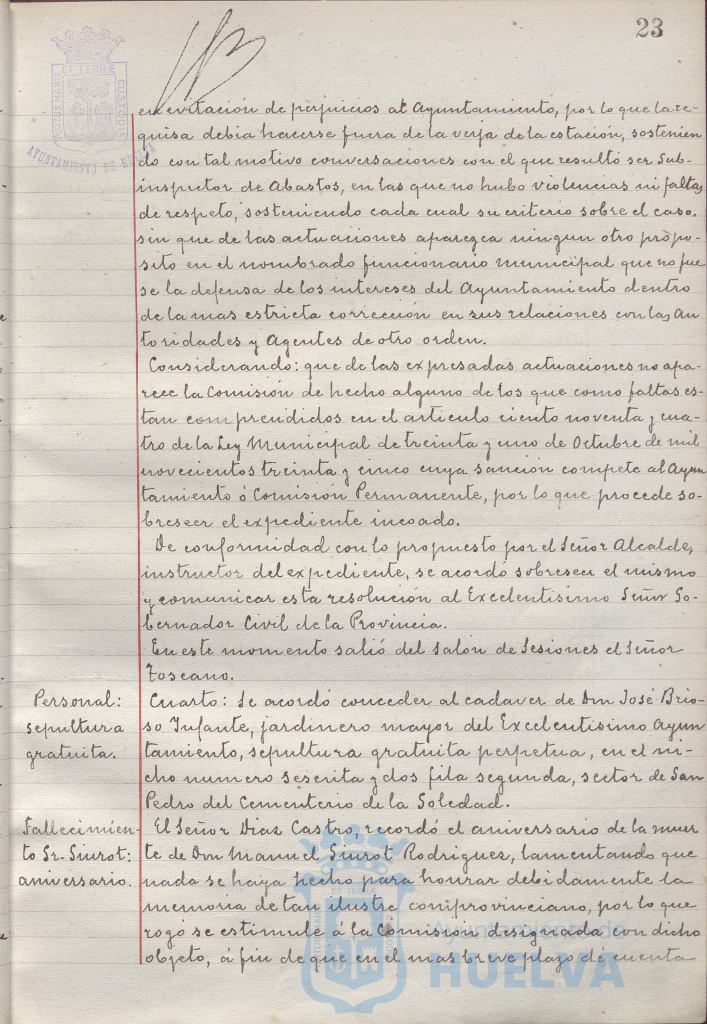 23
ET TERRÆ
PORTUS MARIS
CUSTODIA
AYUNTAMIENTO DE HUELVA
en evitación de perjuicios al Ayuntamiento, por lo que la re-
quisa debia hacerse fuera de la verja de la estación, sostenien
do con tal motivo conversaciones con el que resultó ser Sub-
inspector de Abastos, en las que no hubo violencias ni faltas
de respeto, sosteniendo cada cual su criterio sobre el caso.
sin que de las actuaciones aparezca ningun otro propo-
sito en el nombrado funcionario municipal que no fue
se la defensa de los intereses del Ayuntamiento dentro
de la mas estricta corrección en sus relaciones con las Au
toridades y Agentes de otro orden.
Considerando: que de las expresadas actuaciones no apa-
rece la Comisión de hecho alguno de los que como faltas es-
tan comprendidos en el articulo ciento noventa y cua
tro de la Ley Municipal de treinta y uno de Octubre de mil
novecientos treinta y cinco cuya sanción compete al Ayun
tamiento ó Comisión Permanente, por lo que procede so-
breseer el expediente incoado.
De conformidad con lo propuesto por el Señor Alcalde,
instructor del expediente, se acordó sobreseer el mismo
y comunicar esta resolución al Excelentisimo Señor Go-
bernador Civil de la Provincia.
En este momento salió del Salón de Sesiones el Señor
Toscano.
Personal:
sepultura
gratuita.
Cuarto: Se acordó conceder al cadaver de Don José Brio-
so Infante, jardinero mayor del Excelentisimo Ayun
tamiento, sepultura gratuita perpetua, en el ni-
cho numero sesenta y dos fila segunda, sector de San
Pedro del Cementerio de la Soledad.
Fallecimien-
to Sr. Siurot:
aniversario.
El Señor Diaz Castro, recordó el aniversario de la muer
te de Don Manuel Siurot Rodriguez, lamentando que
nada se haya hecho para honrar debidamente la
memoria de tan ilustre comprovinciano, por lo que
rogó se estimule á la Comisión designada con dicho
objeto, á fin de que en el mas breve plazo dé cuenta
Ayuntamiento de
HUELVA